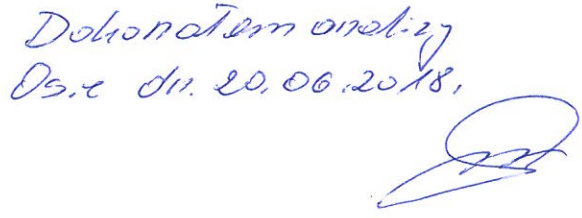 Dokonałem analizy
Osie dn. 20.06.2018.